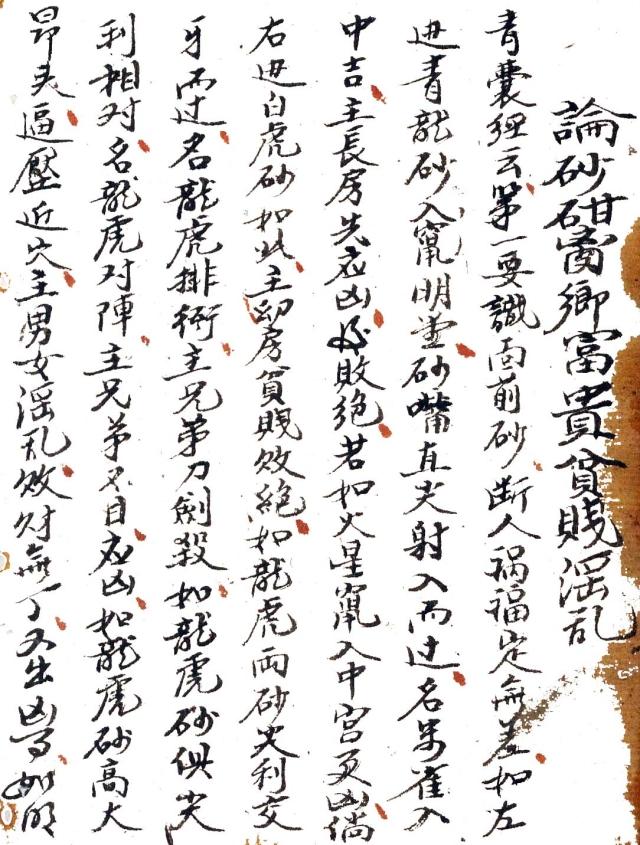 論砂鄉富貴貧賤淫乱
青囊經云第一要識面前砂断人禍福定無差如左
进青龍砂入竄明堂砂嘴直尖射入而过名雀入
中吉主長房失凶敗絕若如火星竄入中宮更凶倘
右进白虎砂如此主幼房貧賤敗絕如龍虎両砂尖利交
牙而过名龍虎排衙主兄弟刀劍殺如龍虎砂俱尖
利相对名龍虎对陣主兄弟目凶如龍虎砂高大
昂夹逼壓近穴主男女淫乱敗財無丁又出凶如明